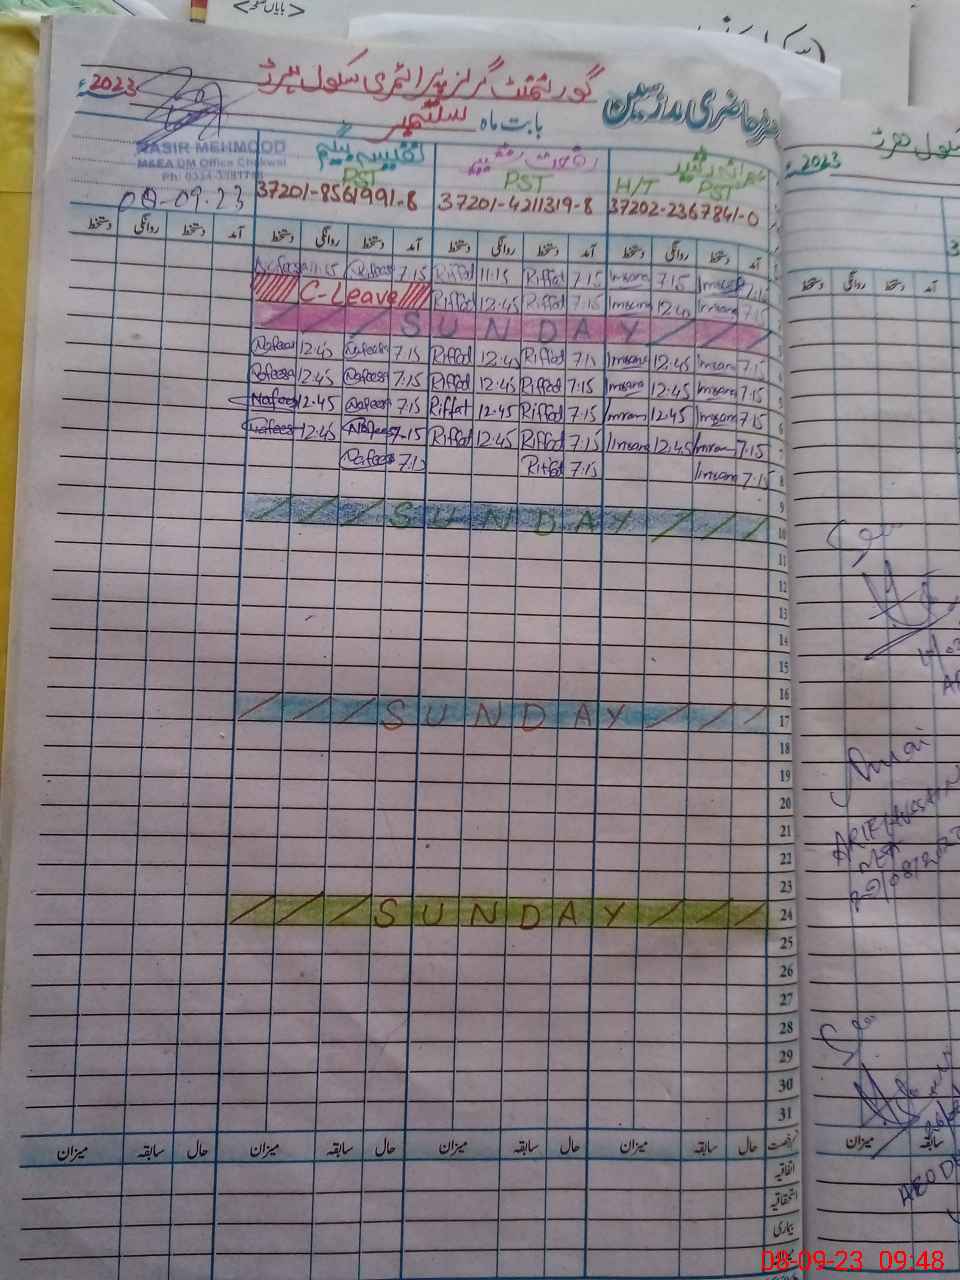 گورنمنٹ گرلز پرائمری سکول ہرڑ
2023ء
حاضری مدرسین
بابت ماہ ستمبر
NASIR MEHMOOD
M&EA DM Office Chakwal
08-09-23
نفیسہ بیگم
PST
37201-8561991-8
PST
37201-4211319-8
H/T PST
37202-2367841-0
آمد دستخط روانگی دستخط آمد دستخط روانگی دستخط آمد دستخط روانگی دستخط آمد دستخط روانگی دستخط
Nafees 11:15 Nafees 7.15 Riffat 11:15 Riffat 7.15 Imrana 7.15 Imrana 7.15
C-Leave Riffat 12.45 Riffat 7.15 Imrana 12.45 Imrana 7.15
SUNDAY
Nafees 12.45 Nafees 7.15 Riffat 12.45 Riffat 7.15 Imrana 12.45 Imrana 7.15
Nafees 12.45 Nafees 7.15 Riffat 12.45 Riffat 7.15 Imrana 12.45 Imrana 7.15
Nafees 12.45 Nafees 7.15 Riffat 12.45 Riffat 7.15 Imrana 12.45 Imrana 7.15
Nafees 12.45 Nafees 7.15 Riffat 12.45 Riffat 7.15 Imrana 12.45 Imrana 7.15
Nafees 7.15 Riffat 7.15 Imrana 7.15 8
9
SUNDAY 10
11
12
13
14
15
16
SUNDAY 17
18
19
20
21
22
23
SUNDAY 24
25
26
27
28
29
30
31
رخصت حال سابقہ میزان حال سابقہ میزان حال سابقہ میزان حال سابقہ میزان
اتفاقیہ
استحقاقیہ
بیماری
2023ء
سکول ہرڑ
آمد دستخط روانگی دستخط
ARIF HUSSAIN
MEA
سابقہ میزان
08-09-23 09:48